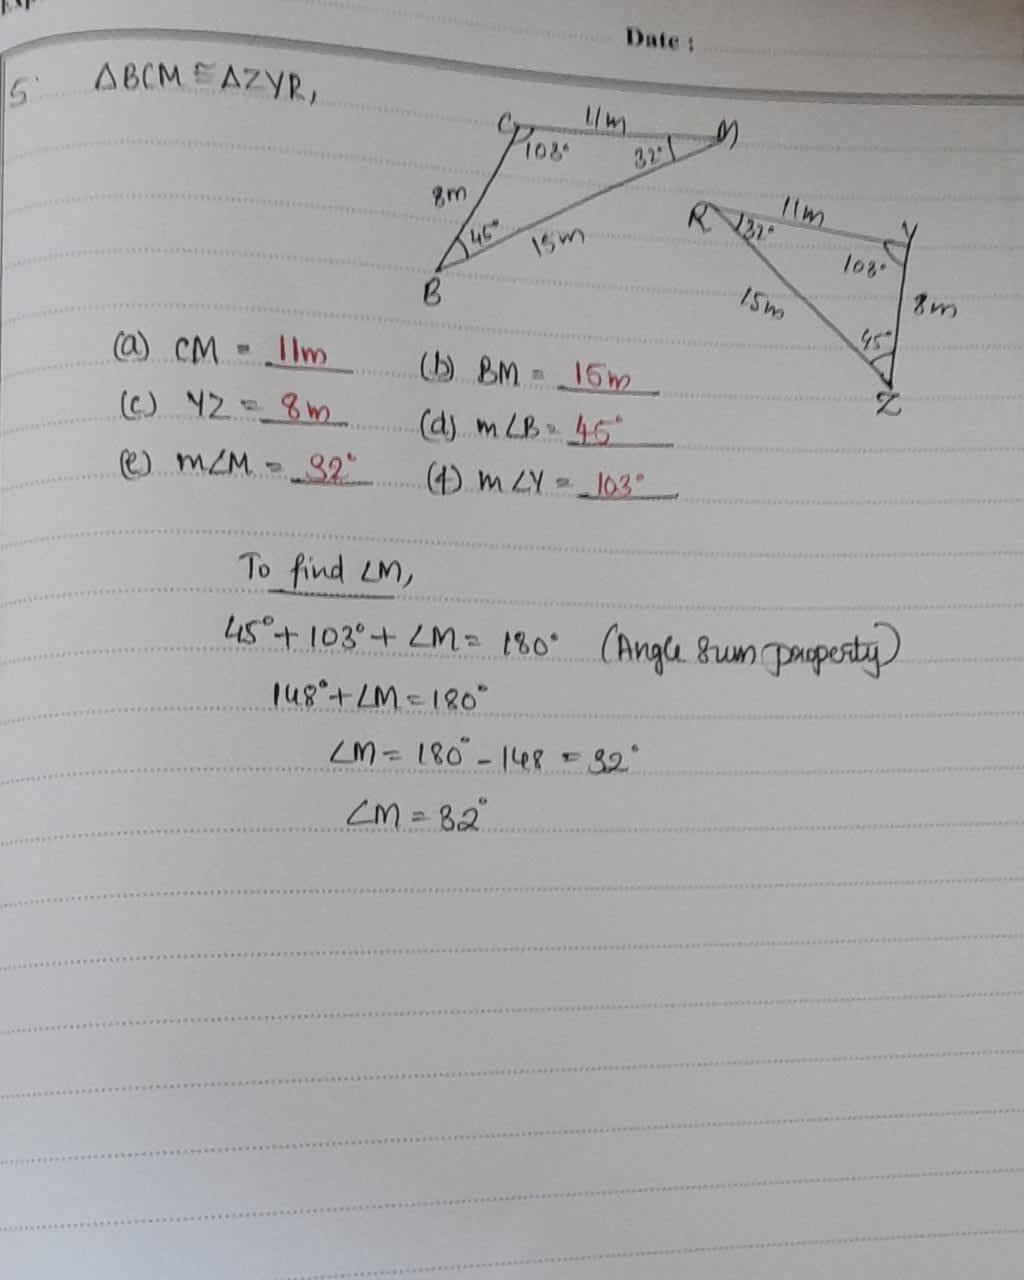 Date :
5. ΔBCM ≅ ΔZYR,
C 11m M
103° 32°
8m
45° 15m
B
R 11m Y
32° 103°
15m 8m
45°
Z
(a) CM = 11m (b) BM = 15m
(c) YZ = 8m (d) m∠B = 45°
(e) m∠M = 32° (f) m∠Y = 103°
To find ∠M,
45° + 103° + ∠M = 180° (Angle sum property)
148° + ∠M = 180°
∠M = 180° - 148 = 32°
∠M = 32°